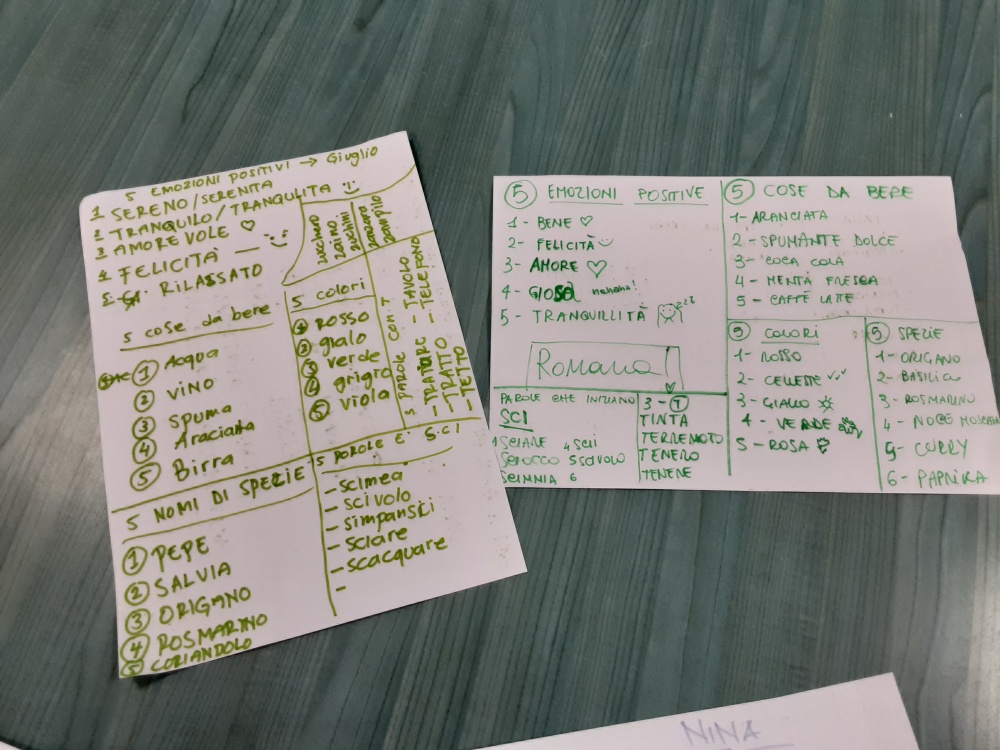 5 EMOZIONI POSITIVI → Giuglio
1 SERENO/SERENITA
2 TRANQUILO/TRANQULITA
3 AMORE VOLE
4 FELICITÀ
5 RILASSATO
zaino
zucchini
zanzara
5 cose da bere
1 Acqua
2 VINO
3 Spuma
4 Araciata
5 Birra
5 colori
1 ROSSO
2 gialo
3 verde
4 grigio
5 viola
5 PAROLE CON T
- TAVOLO
- TELEFONO
- TRATTORE
- TRATTO
- TETTO
5 NOMI DI SPEZIE
1 PEPE
2 SALVIA
3 ORIGANO
4 ROSMARINO
5 CORIANDOLO
5 POROLE E' S.CI
- scimea
- scivolo
- simpansci
- sciare
- scacquare
-
5 EMOZIONI POSITIVE
1- BENE
2- FELICITÀ
3- AMORE
4- GIOSA
5- TRANQUILLITÀ
Romana
5 COSE DA BERE
1- ARANCIATA
2- SPUMANTE DOLCE
3- COCA COLA
4- MENTA FRESCA
5- CAFFÈ LATTE
PAROLE CHE INIZIANO
SCI
1 SCIARE 4 SCII
SCIROCCO 5 SCIVOLO
SCIMNIA 6
3 - T
TINTA
TERREMOTO
TENERO
TENERE
5 COLORI
1- ROSSO
2- CELESTE
3- GIALLO
4- VERDE
5- ROSA
5 SPEZIE
1- ORIGANO
2- BASILICO
3- ROSMARINO
4- NOCE MOSCATA
5- CURRY
6- PAPRIKA
NINA